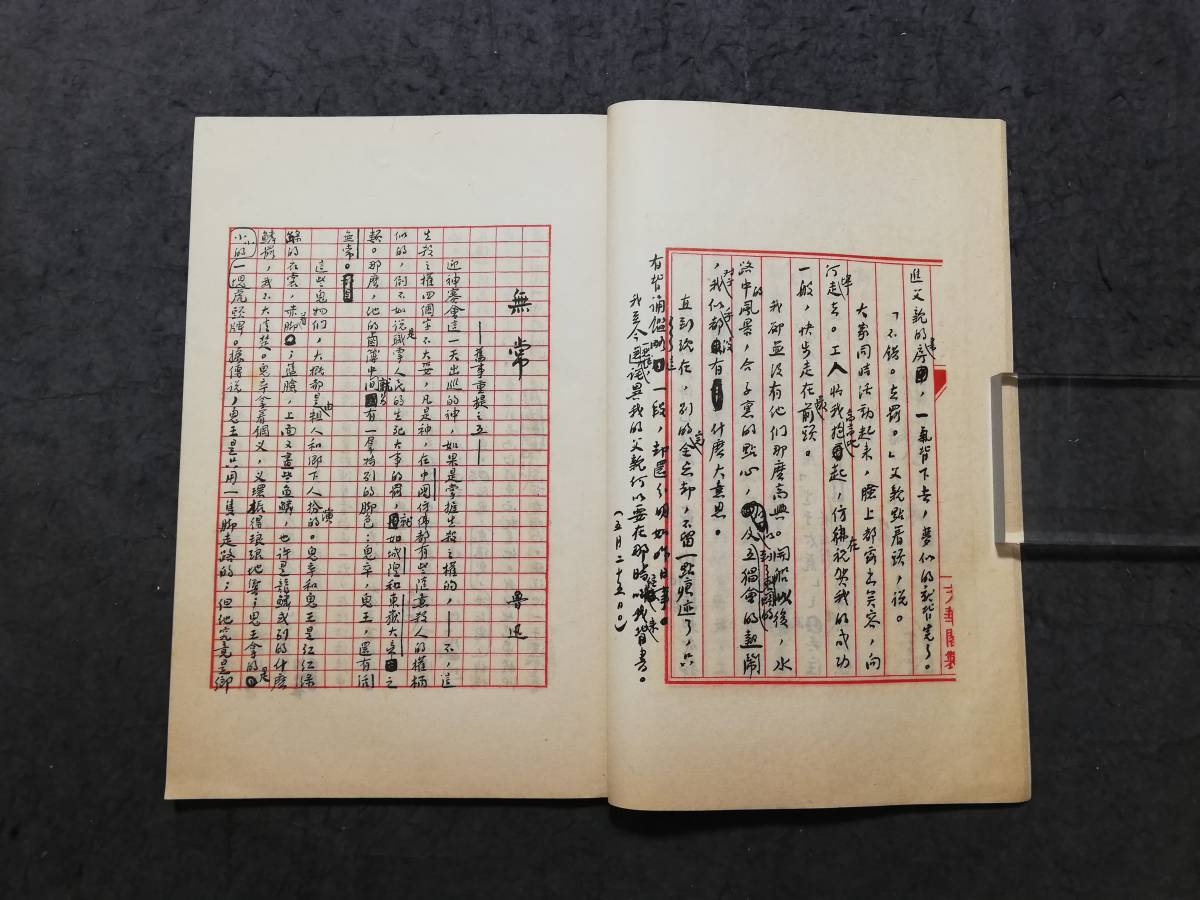 進父親的房裏，一氣背下去，夢似的就背完了。
「不錯。去罷。」父親點着頭，說。
大家同時活動起來，臉上都露出笑容，向
河埠走去。工人將我高高地抱起，仿佛在祝賀我的成功
一般，快步走在最前頭。
我卻並沒有他們那麼高興。開船以後，水
路中的風景，盒子裏的點心，以及到了東關的五猖會的熱鬧
，對於我似乎都沒有什麼大意思。
直到現在，別的完全忘卻，不留一點痕迹了，只
有背誦鑑略這一段，却還分明如昨日事。
我至今一想起，還詫異我的父親何以要在那時候叫我來背書。
（五月二十五日。）
無常
魯迅
——舊事重提之五——
迎神賽會這一天出巡的神，如果是掌握生殺之權的，——不，這
生殺之權四個字不大妥，凡是神，在中國仿佛都有些隨意殺人的權柄
似的，倒不如說是職掌人民的生死大事的罷，就如城隍和東嶽大帝之
類。那麼，他的鹵簿中間就另有一羣特別的脚色：鬼卒，鬼王，還有活
無常。
這些鬼物們，大概都是由粗人和鄉下人扮演的。鬼卒和鬼王是紅紅綠
綠的衣裳，赤着脚；藍臉，上面又畫些魚鱗，也許是龍鱗或別的什麼
鱗罷，我不大清楚。鬼卒拿着鋼叉，叉環振得琅琅地響；鬼王拿的是
一塊小小的虎頭牌。據傳說，鬼王是只用一隻脚走路的；但他究竟是鄉